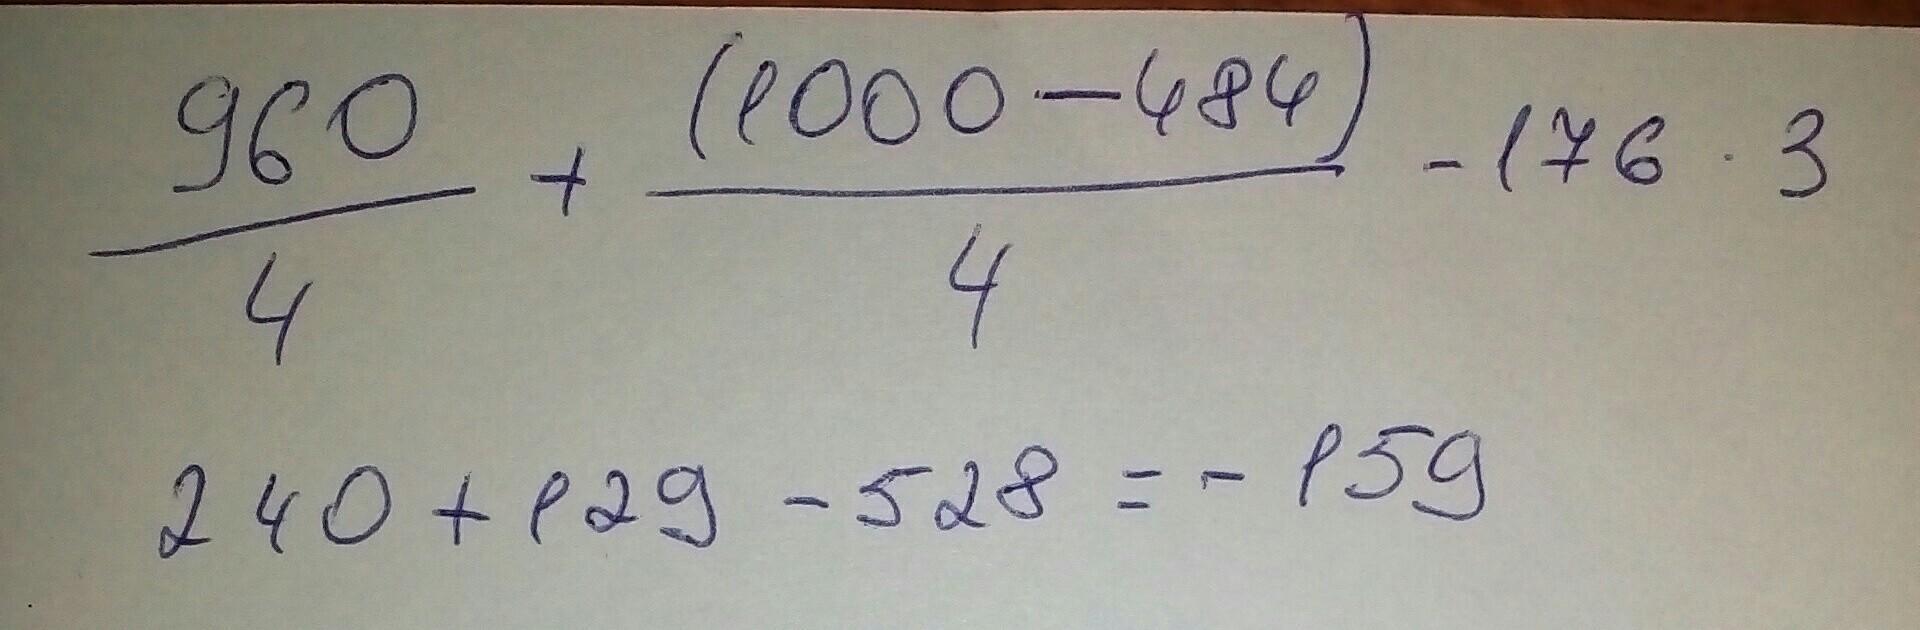 960/4 + (1000-484)/4 - 176 · 3
240 + 129 - 528 = - 159